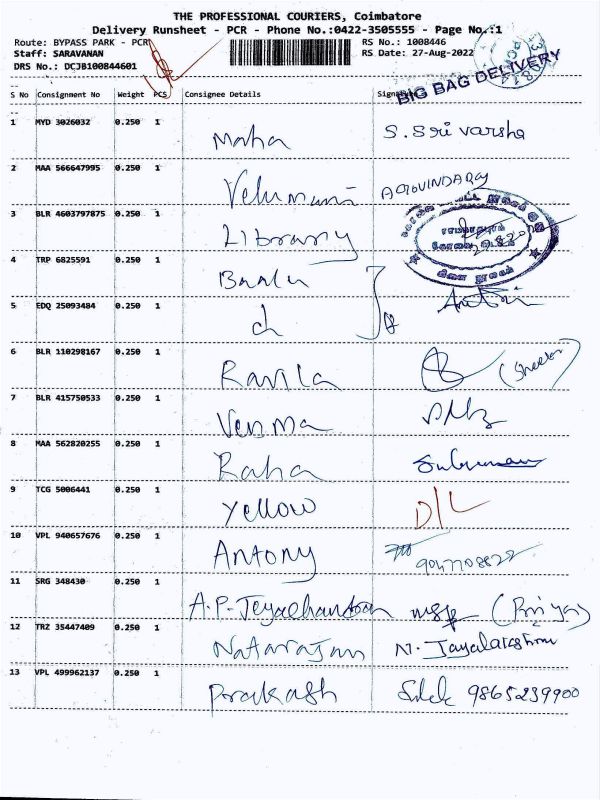 THE PROFESSIONAL COURIERS, Coimbatore
Delivery Runsheet - PCR - Phone No.:0422-3505555 - Page No.:1
Route: BYPASS PARK - PCR RS No.: 1008446
Staff: SARAVANAN RS Date: 27-Aug-2022
DRS No.: DCJB100844601
BIG BAG DELIVERY
S No Consignment No Weight PCS Consignee Details
1 MYD 3026032 0.250 1 Maha S. Sri varsha
2 MAA 566647995 0.250 1 Velumani AGOVINDARAJ
3 BLR 4603797875 0.250 1 Library
4 TRP 6825591 0.250 1
5 EDQ 25093484 0.250 1
6 BLR 110298167 0.250 1
7 BLR 415750533 0.250 1
8 MAA 562820255 0.250 1 Raha
9 TCG 5006441 0.250 1 Yellow D/L
10 VPL 940657676 0.250 1 Antony
11 SRG 348430 0.250 1 A.P-Jeyachandran (Priya)
12 TRZ 35447409 0.250 1 Natarajan N. Jayalakshmi
13 VPL 499962137 0.250 1 Prakash 9865239900